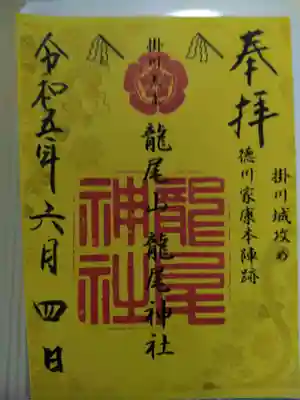 奉拝
掛川城攻め
徳川家康本陣跡
掛川
龍尾山 龍尾神社
龍尾神社
令和五年 六月 四日